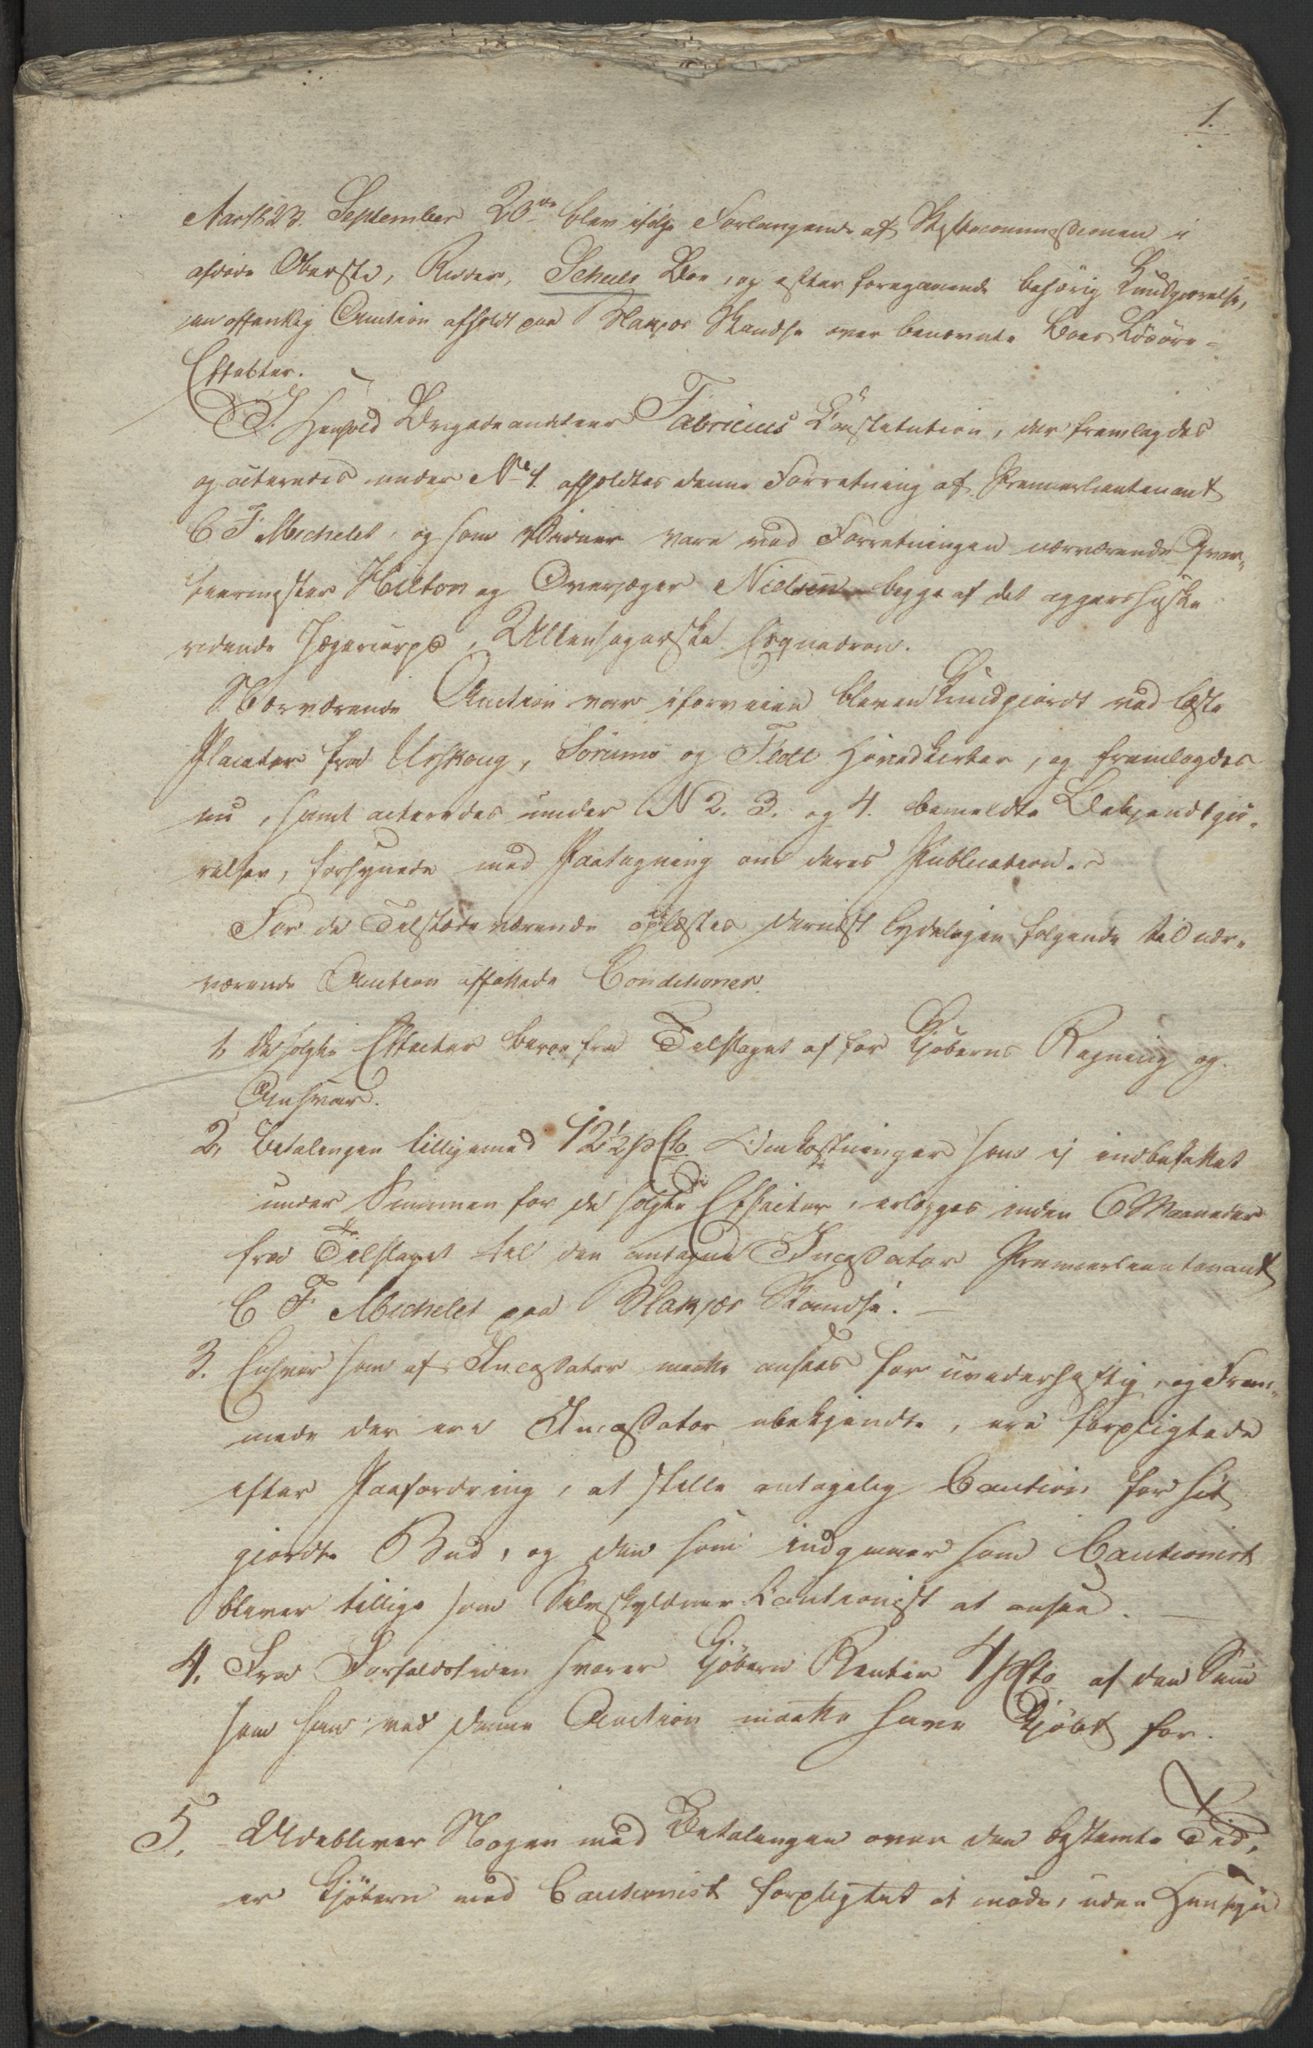 1.
Aar 1823. September 20de blev ifølge Forlangende af Skiftecommissionen i
afdøde Oberste, Ridder, Schultz Boe, og efter foregaaende behørig Kundgiørelse,
en offentlig Auction afholdt paa Blakjær Skandse over benævnte Boes Løsøre-
Effecter.
I Henhold Brigadeauditeur Fabricius's Constitution, der fremlagdes
og acteredes under No 1. afholdtes denne Forretning af Premierlieutenant
C F Michelet, og som Vidner vare ved Forretningen nærværende Qvar-
teermester Hilton og Overjæger Nielsen begge af det aggershusske
ridende Jægercorps, Ullensagerske Esqvadron.
Nærværende Auction var iforveien bleven kundgiordt ved læste
Placater fra Urskoug, Sørums og Fedt Hovedkirker, og fremlagdes
nu, samt acteredes under N 2. 3. og 4. bemeldte Bekjendtgiø-
relser, forsynede med Paategning om deres Publication.
For de Tilstædeværende oplæstes dernæst lydeligen følgende til nær-
værende Auction affattede Conditioner.
1, De solgte Effecter beroe fra Tilslaget af for Kjøberns Regning og
Ansvar.
2, Betalingen tilligemed 12½ pCto Omkostninger som ej indbefattet
under Summen for de solgte Effecter, erlægges inden 6 Maaneder
fra Tilslaget til den antagne Incassator Premierlieutenant
C F Michelet paa Blakjær Skandse.
3. Enhver som af Incassator maatte ansees for uvederhæftig, og Frem-
mede der ere Incassator ubekjendte, ere forpligtede
efter Paafordring, at stille antagelig Caution for sit
giordte Bud, og den som indgaaer som Cautionist
bliver tillige som Selvskyldner Cautionist at ansee.
4. Fra Forfaldstiden svarer Kjøbern Renter 4 pCto af den Sum
som han ved denne Auction maatte have Kjøbt for.
5. Udebliver Nogen med Betalingen over den bestemte Tid,
er Kjøbern med Cautionist forpligtet at møde, uden Hensyn